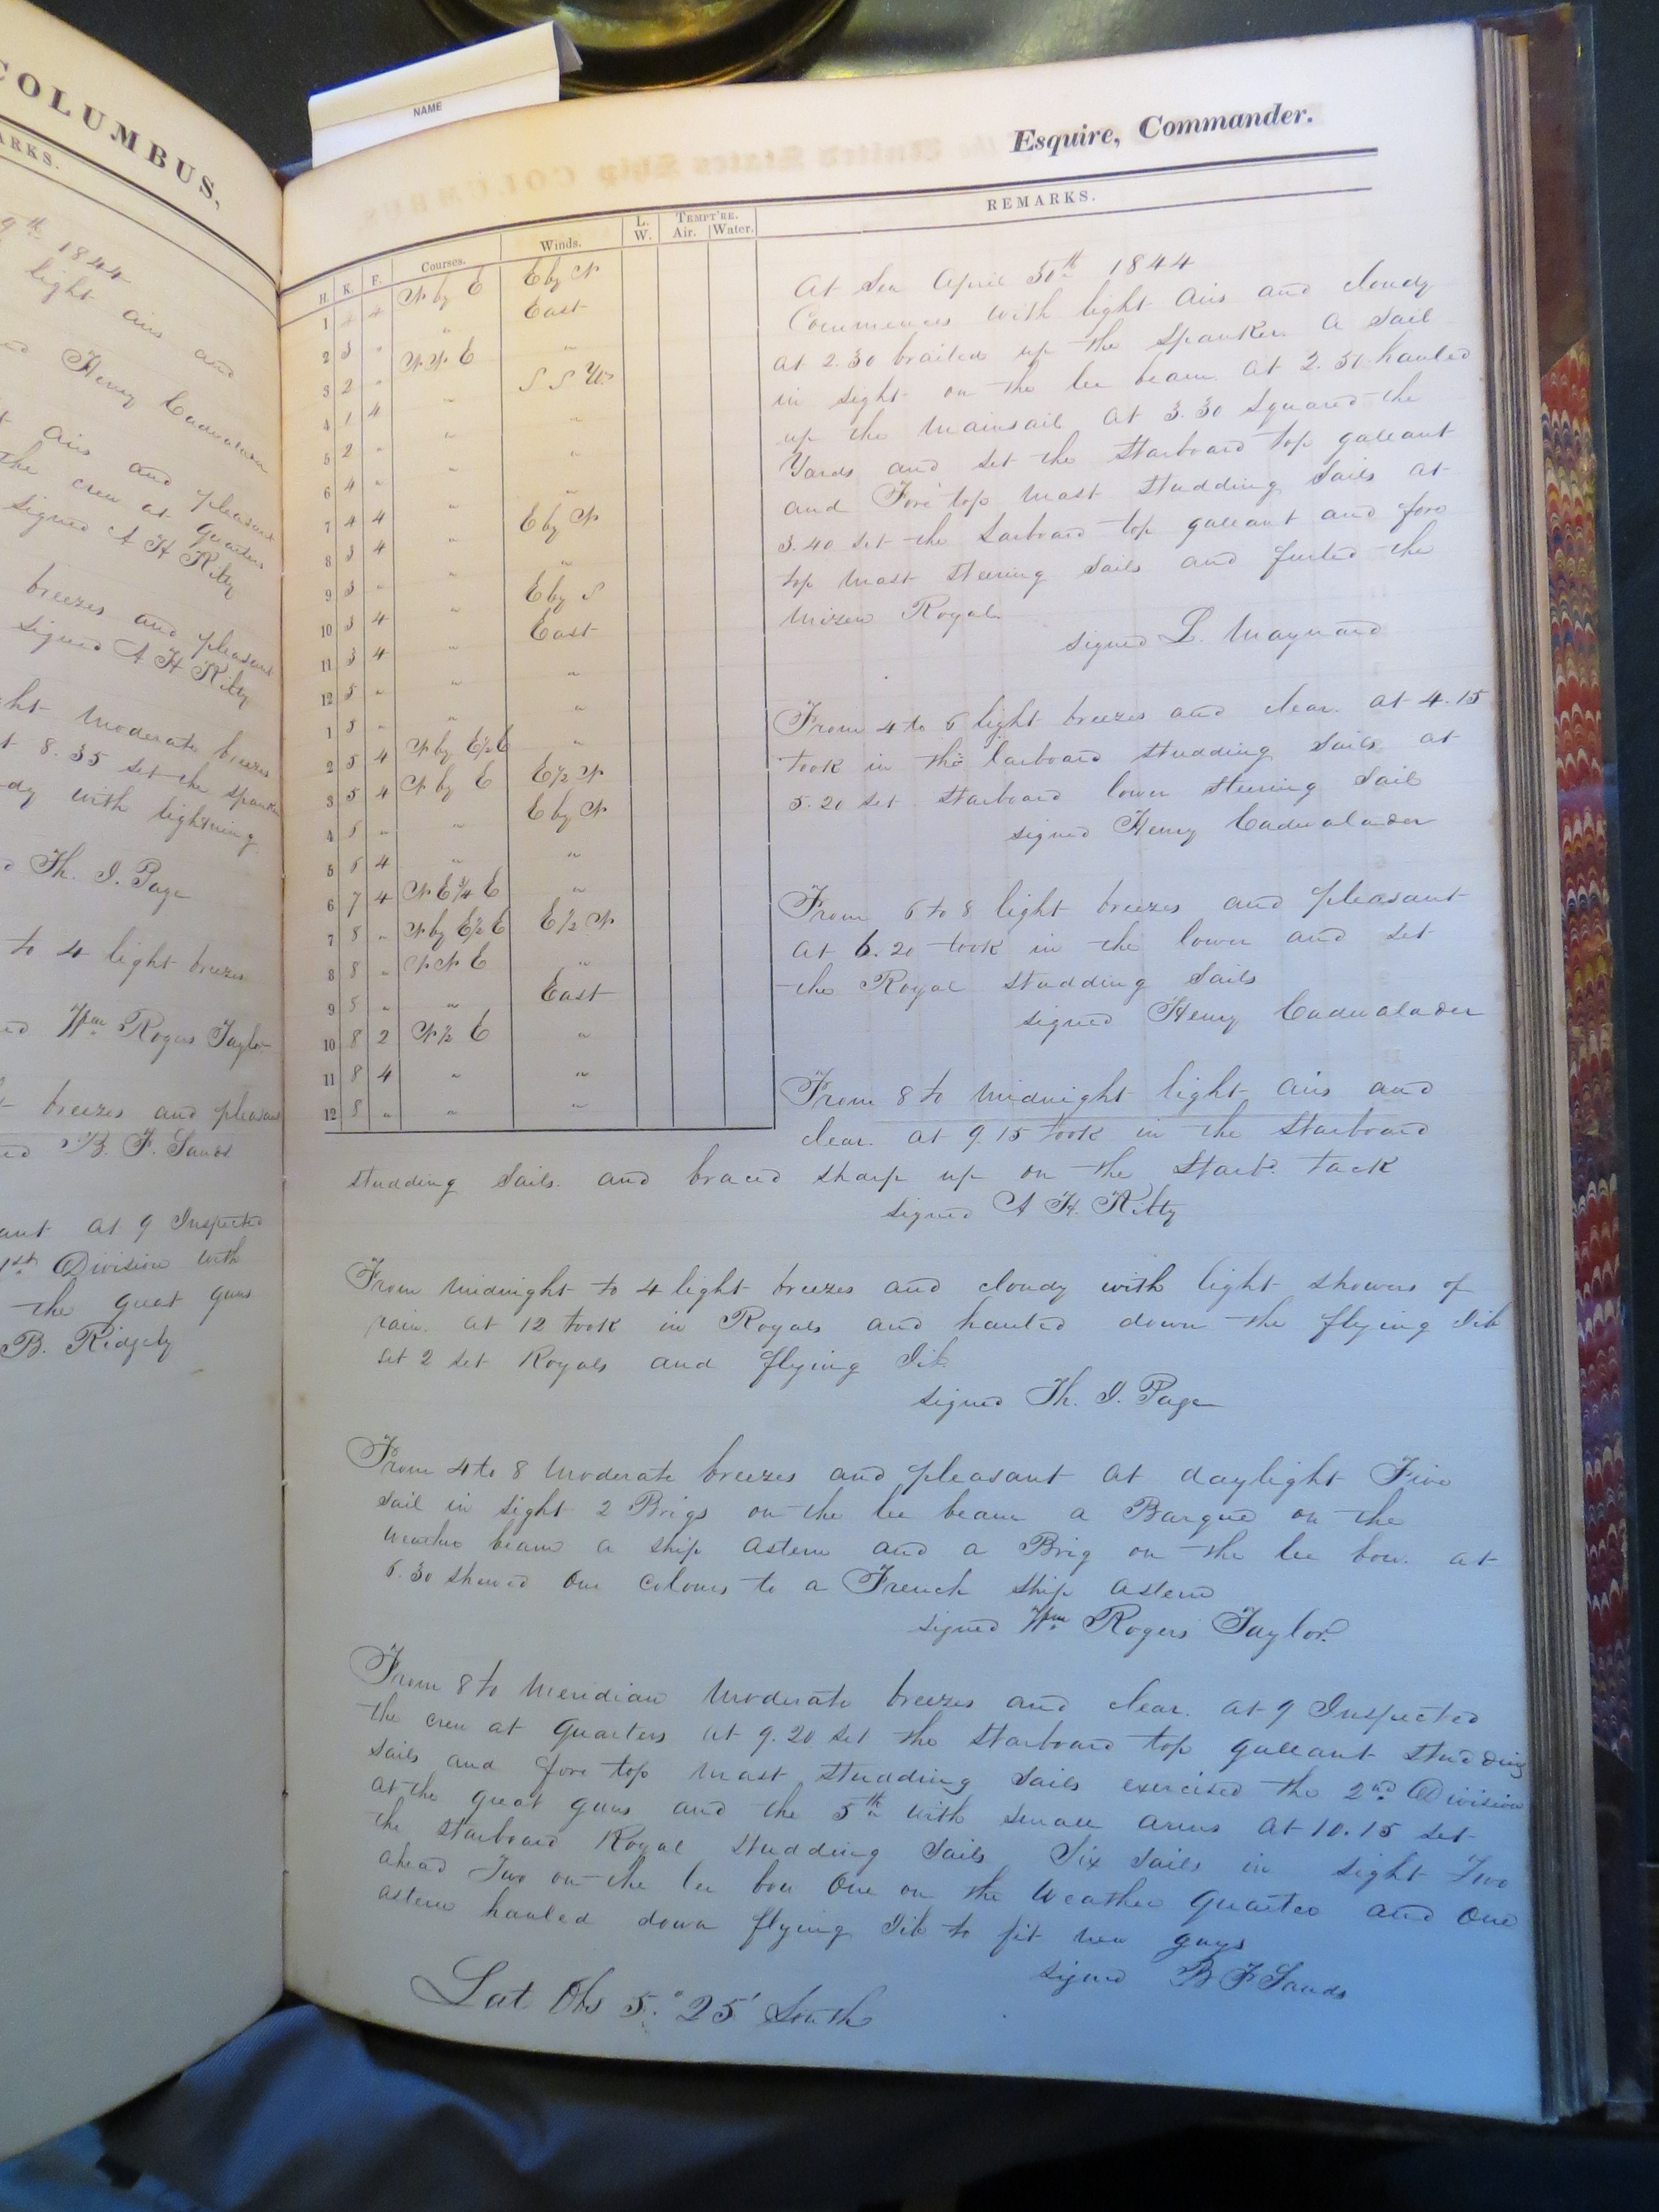 COLUMBUS,
ARKS.
9th 1844
light airs and
Henry Cadwalader
airs and pleasant
the crew at Quarters
signed A H Kilty
breezes and pleasant
signed A H Kilty
Moderate breezes
8.35 set the spanker
with lightning
Th. J. Page
to 4 light breezes
Wm Rogers Taylor
breezes and pleasant
B. F. Sands
at 9 Inspected
1st Division with
the great guns
B. Ridgely
NAME
Esquire, Commander.
H. K. F. Courses. Winds. L. W. TEMPT'RE. Air. Water. REMARKS.
1 4 4 N by E E by N
2 3 " " East
3 2 " N N E "
4 1 4 " S S W
5 2 " " "
6 4 " " "
7 4 4 " "
8 3 4 " E by N
9 3 " " "
10 3 4 " E by S
11 3 4 " East
12 5 " " "
1 5 " " "
2 5 4 N by E ½ E "
3 5 4 N by E E ½ N
4 5 " " E by N
5 6 4 " "
6 7 4 N E ¾ E "
7 8 " N by E ½ E E ½ N
8 8 " N N E "
9 8 " " East
10 8 2 N ½ E "
11 8 4 " "
12 8 " " "
At Sea April 30th 1844
Commences with light airs and cloudy
at 2.30 brailed up the spanker. A sail
in sight on the lee beam at 2.37 hauled
up the mainsail at 3.30 squared the
Yards and set the starboard top gallant
and Fore top mast studding sails at
3.40 set the larboard top gallant and fore
top mast steering sails and furled the
mizen Royal
signed L. Maynard
From 4 to 6 light breezes and clear. at 4.15
took in the larboard studding sails at
5.20 set starboard lower steering sail
signed Henry Cadwalader
From 6 to 8 light breezes and pleasant
at 6.20 took in the lower and set
the Royal studding sails
signed Henry Cadwalader
From 8 to midnight light airs and
clear. at 9.15 took in the starboard
studding sails. and braced sharp up on the Starb. tack
signed A H. Kilty
From midnight to 4 light breezes and cloudy with light showers of
rain. at 12 took in Royals and hauled down the flying Jib
at 2 set Royals and flying Jib
signed Th. J. Page
From 4 to 8 Moderate breezes and pleasant at daylight Five
sail in sight 2 Brigs on the lee beam a Barque on the
weather beam a ship astern and a Brig on the lee bow. at
6.30 showed our colours to a French ship astern
signed Wm Rogers Taylor
From 8 to Meridian Moderate breezes and clear. at 9 Inspected
the crew at Quarters at 9.20 set the starboard top gallant studding
sails and fore top mast studding sails exercised the 2nd Division
at the great guns and the 5th with small arms at 10.15 set
the starboard Royal studding sails Six sails in sight Two
ahead Two on the lee bow One on the Weather quarter and One
astern hauled down flying Jib to fit new guys
signed B F Sands
Lat Obs 5.° 25' South